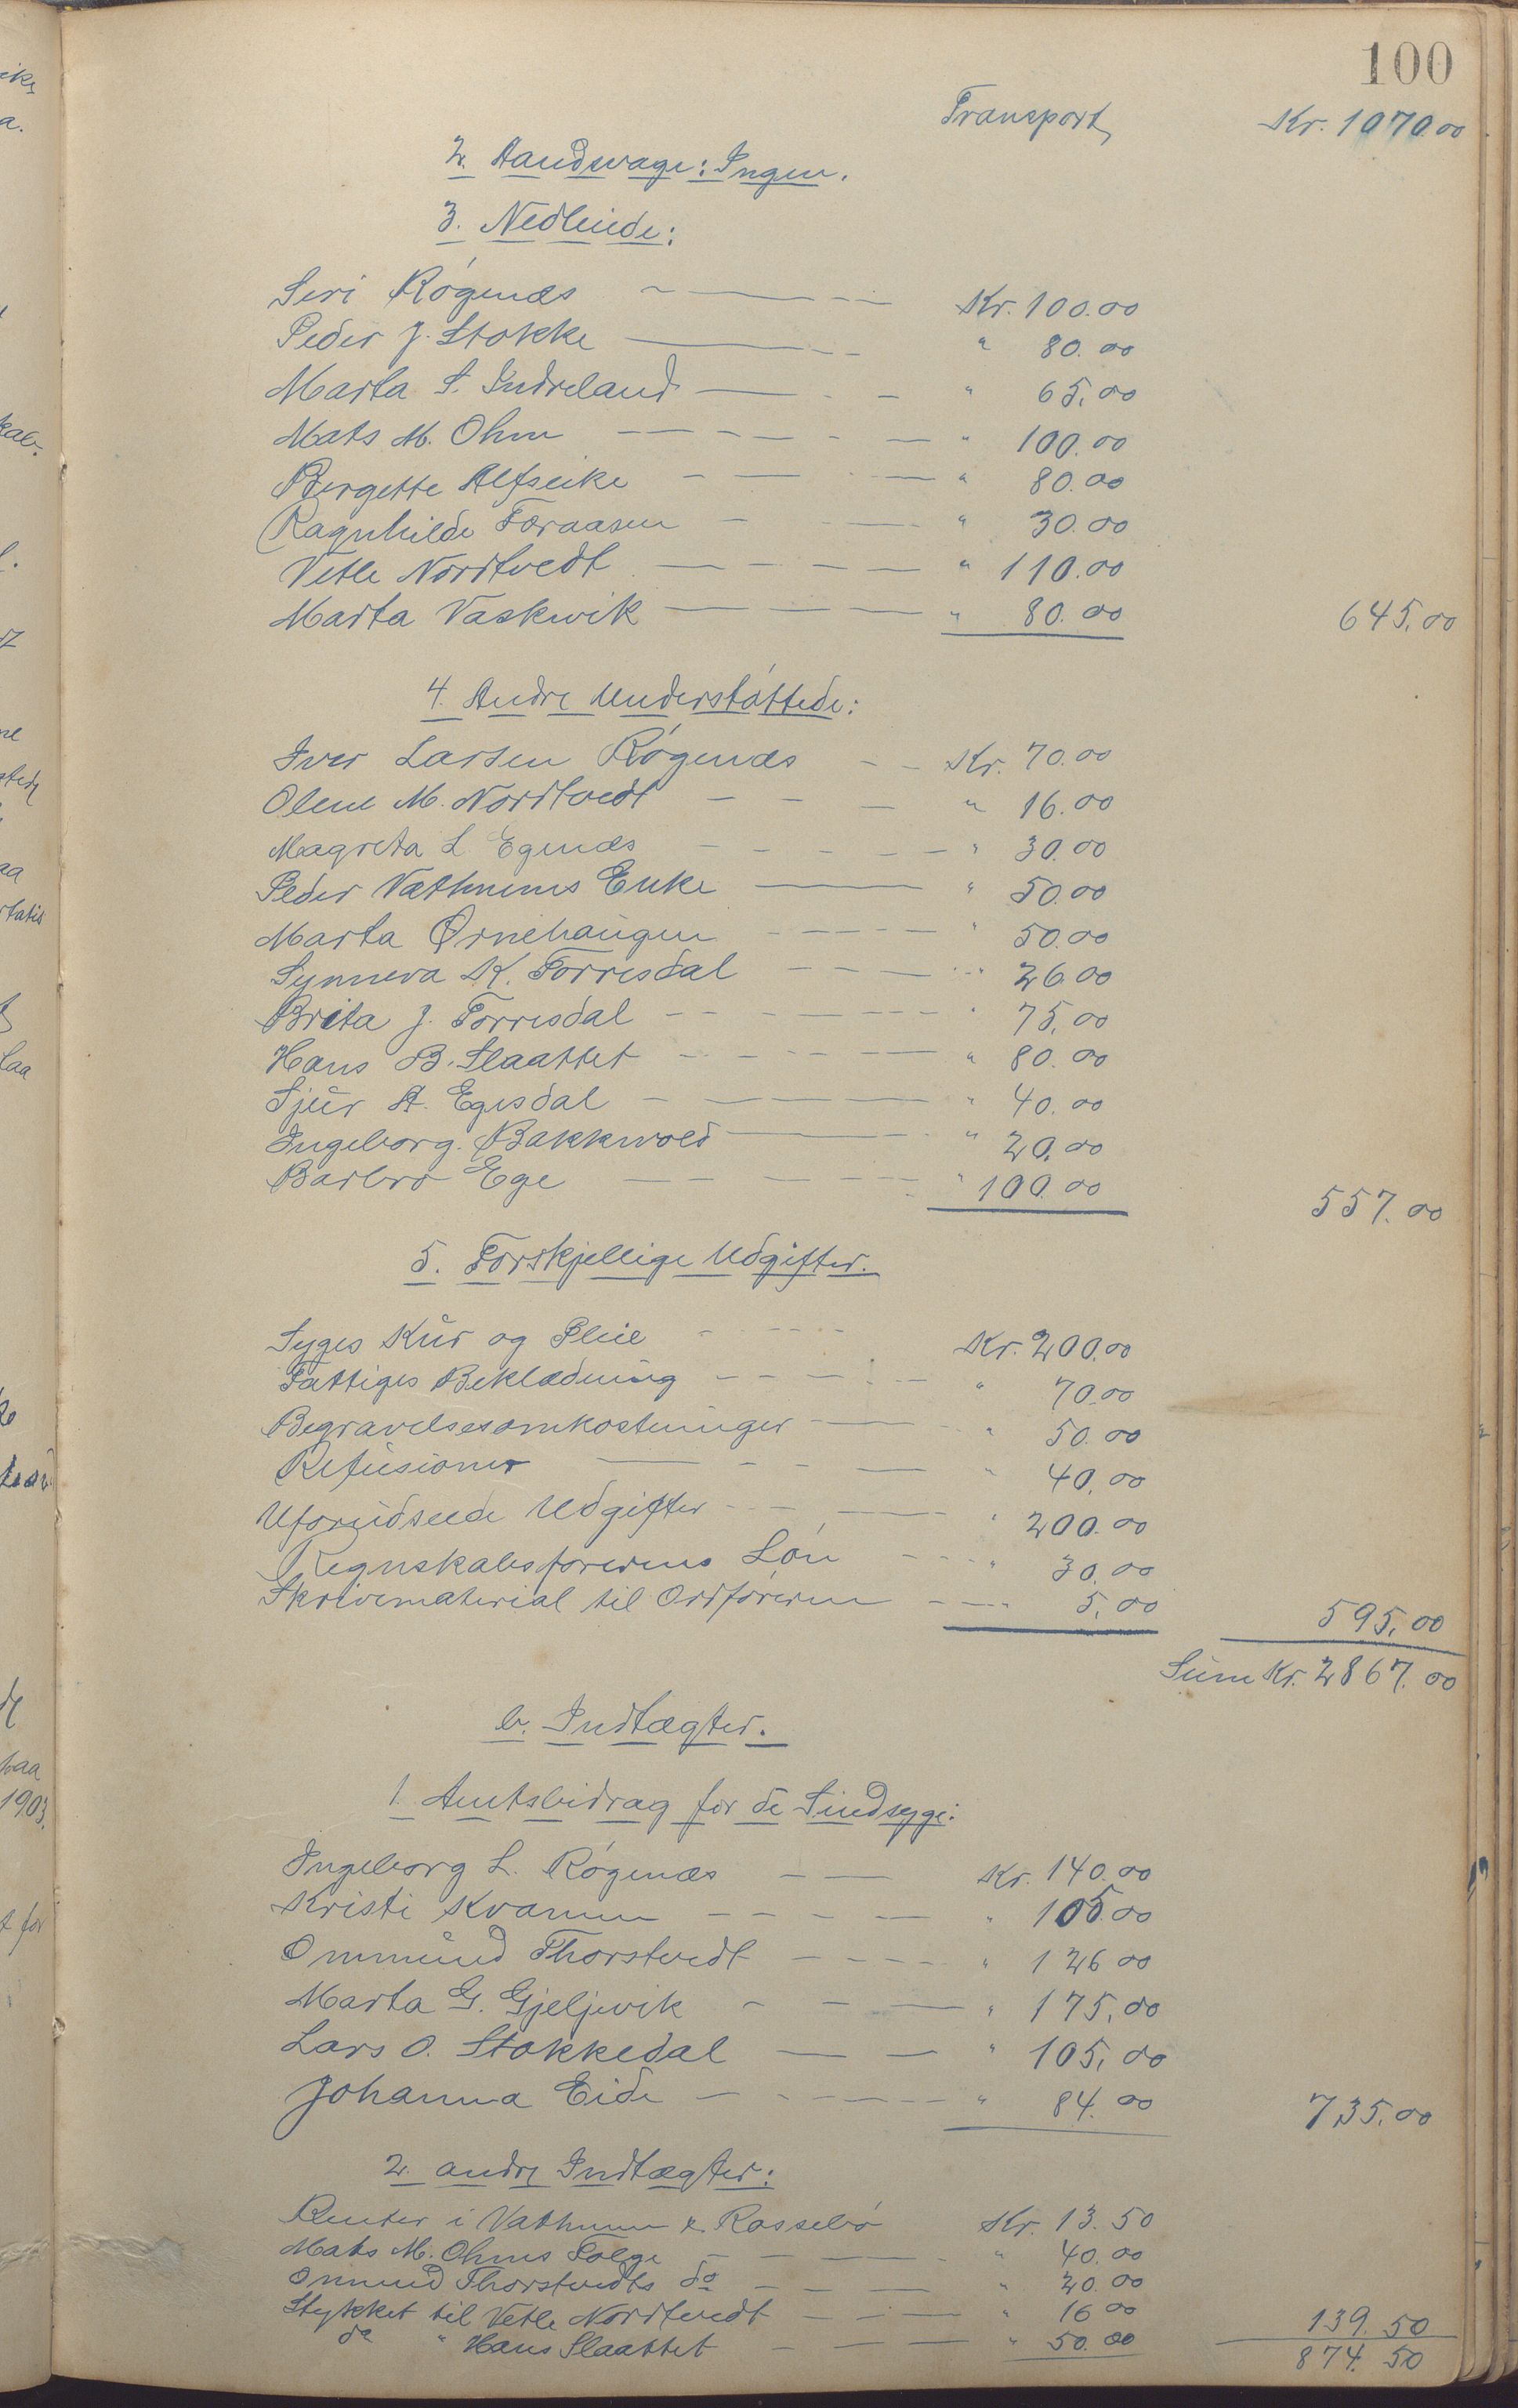 100
Transport, Kr. 1070.00
2. Aandsvage: Ingen.
3. Nedleiede:
Siri Rógenæs Kr. 100.00
Peder J. Stokke " 80.00
Marta S. Indreland " 65.00
Mats M. Ohm " 100.00
Bergette Alfseike " 80.00
Ragnhilde Foraasen " 30.00
Vetle Nordtvedt " 110.00
Marta Vaskvik " 80.00 645.00
4. Andre Understóttede:
Iver Larsen Rógenæs Kr. 70.00
Olene M. Nordtvedt " 16.00
Magreta L Egenæs " 30.00
Peder Vathnems Enke " 50.00
Marta Ørnehaugen " 50.00
Synneva K. Torresdal " 26.00
Brita J. Torresdal " 75.00
Hans B. Slaattet " 80.00
Sjur A. Egesdal " 40.00
Ingeborg Bakkevold " 20.00
Barbro Ege " 100.00 557.00
5. Forskjellige Udgifter.
Syges Kur og Pleie Kr. 200.00
Fattiges Beklædning " 70.00
Begravelsesomkostninger " 50.00
Refusioner " 40.00
Uforudseede Udgifter " 200.00
Regnskabsforerens Lón " 30.00
Skrivematerial til Ordfóreren 5.00 595.00
Sum Kr. 2867.00
b. Indtægter.
1. Amtsbidrag for de Sindsyge:
Ingeborg L. Rógenæs Kr. 140.00
Kristi Kvamen " 105.00
Ommund Thorstvedt " 126 00
Marta G. Gjeljevik " 175.00
Lars O. Stokkedal " 105.00
Johanna Eide " 84.00 735.00
2. andre Indtægter:
Renter i Vathnem & Rossebó Kr. 13.50
Mats M. Ohms Folge " 40.00
Ommund Thorstvedts do " 20.00
Stykket til Vetle Nordtvedt " 16 00
do " Hans Slaattet " 50.00 139.50
874.50